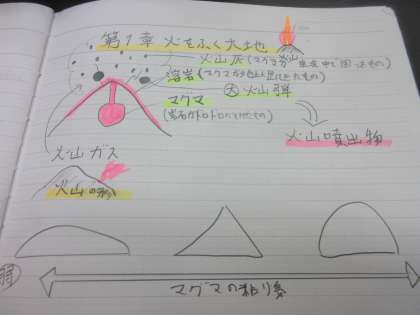 第1章 火をふく大地
火山灰(マグマが
溶岩(マグマが地上に出てきたもの)
大 火山弾
マグマ
(岩石がドロドロにとけたもの)
火山噴出物
火山ガス
火山の形
弱
マグマの粘り気